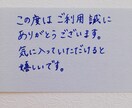 この度は ご利用 誠に
ありがとうございます。
気に入っていただけると
嬉しいです。